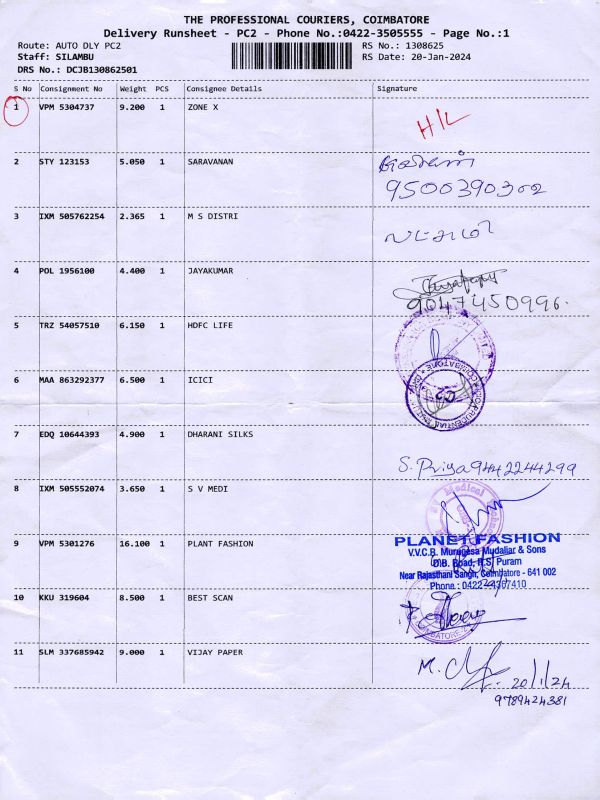 THE PROFESSIONAL COURIERS, COIMBATORE
Delivery Runsheet - PC2 - Phone No.:0422-3505555 - Page No.:1
Route: AUTO DLY PC2 RS No.: 1308625
Staff: SILAMBU RS Date: 20-Jan-2024
DRS No.: DCJB130862501
S No Consignment No Weight PCS Consignee Details Signature
1 VPM 5304737 9.200 1 ZONE X H/L
2 STY 123153 5.050 1 SARAVANAN
9500390302
3 IXM 505762254 2.365 1 M S DISTRI
4 POL 1956100 4.400 1 JAYAKUMAR
9047450996.
5 TRZ 54057510 6.150 1 HDFC LIFE
6 MAA 863292377 6.500 1 ICICI
7 EDQ 10644393 4.900 1 DHARANI SILKS
S. Priya 9442244299
8 IXM 505552074 3.650 1 S V MEDI
9 VPM 5301276 16.100 1 PLANT FASHION
PLANET FASHION
V.V.C.R. Murugesa Mudaliar & Sons
D.B. Road, R.S. Puram
Near Rajasthani Sangh, Coimbatore - 641 002
Phone : 0422-4367410
10 KKU 319604 8.500 1 BEST SCAN
COIMBATORE
11 SLM 337685942 9.000 1 VIJAY PAPER
20/1/24
9789424381